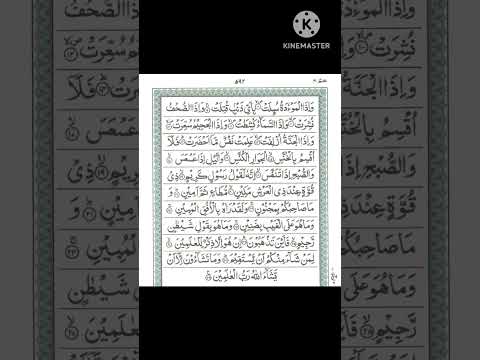 KINEMASTER
۵۹۲
وَاِذَا الْمَوْءٗدَةُ سُىِٕلَتْ ۝ بِاَيِّ ذَنْۢبٍ قُتِلَتْ ۝ وَاِذَا الصُّحُفُ
نُشِرَتْ ۝ وَاِذَا السَّمَآءُ كُشِطَتْ ۝ وَاِذَا الْجَحِيْمُ سُعِّرَتْ ۝
وَاِذَا الْجَنَّةُ اُزْلِفَتْ ۝ عَلِمَتْ نَفْسٌ مَّاۤ اَحْضَرَتْ ۝ فَلَاۤ
اُقْسِمُ بِالْخُنَّسِ ۝ الْجَوَارِ الْكُنَّسِ ۝ وَالَّيْلِ اِذَا عَسْعَسَ ۝
وَالصُّبْحِ اِذَا تَنَفَّسَ ۝ اِنَّهٗ لَقَوْلُ رَسُوْلٍ كَرِيْمٍ ۝ ذِيْ
قُوَّةٍ عِنْدَ ذِي الْعَرْشِ مَكِيْنٍ ۝ مُّطَاعٍ ثَمَّ اَمِيْنٍ ۝ وَ
مَا صَاحِبُكُمْ بِمَجْنُوْنٍ ۝ وَلَقَدْ رَاٰهُ بِالْاُفُقِ الْمُبِيْنِ ۝
وَمَا هُوَ عَلَى الْغَيْبِ بِضَنِيْنٍ ۝ وَمَا هُوَ بِقَوْلِ شَيْطٰنٍ
رَّجِيْمٍ ۝ فَاَيْنَ تَذْهَبُوْنَ ۝ اِنْ هُوَ اِلَّا ذِكْرٌ لِّلْعٰلَمِيْنَ ۝
لِمَنْ شَآءَ مِنْكُمْ اَنْ يَّسْتَقِيْمَ ۝ وَمَا تَشَآءُوْنَ اِلَّاۤ اَنْ
يَّشَآءَ اللّٰهُ رَبُّ الْعٰلَمِيْنَ ۝